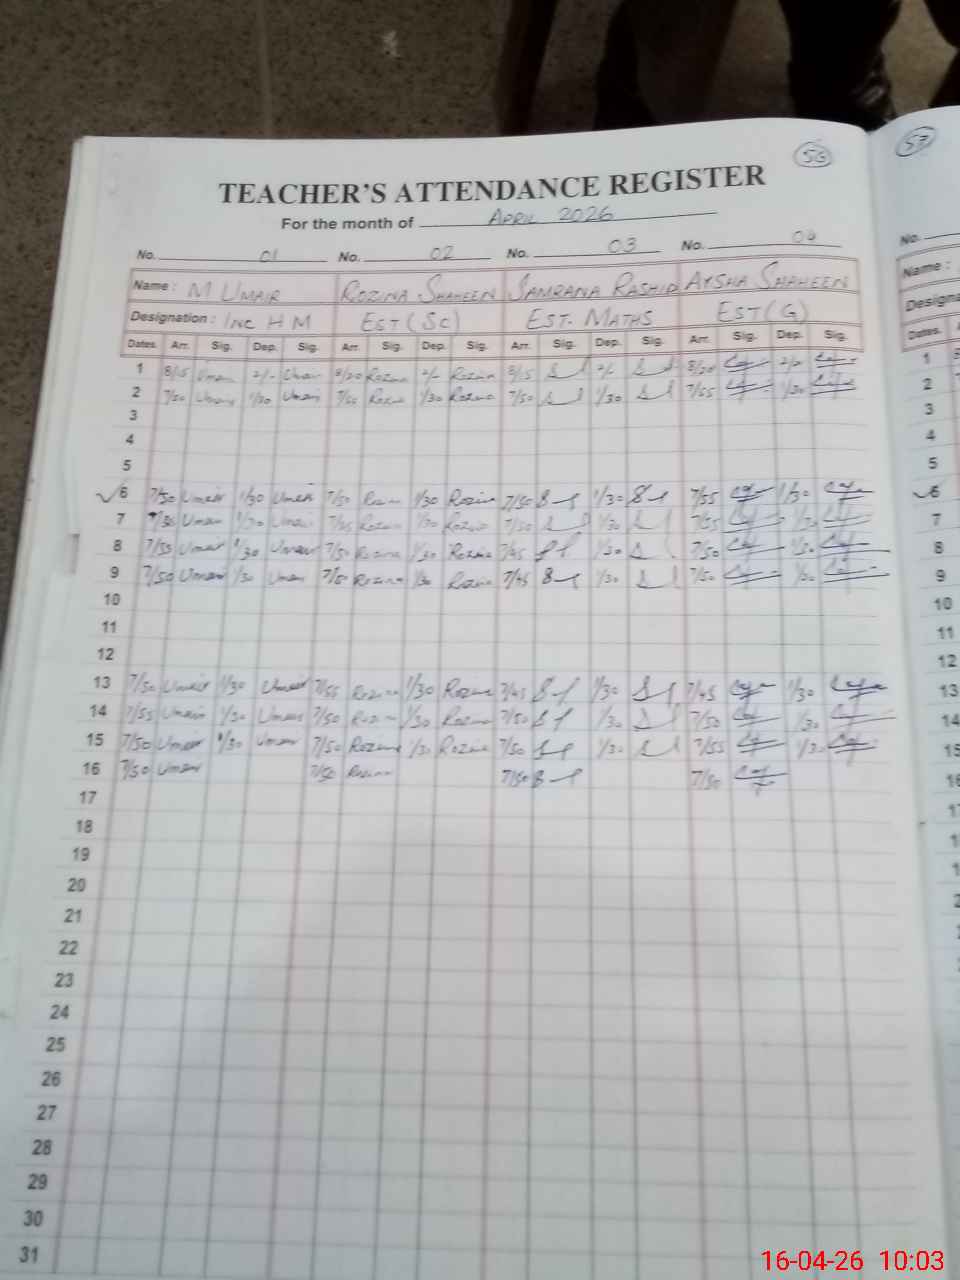 56
57
TEACHER'S ATTENDANCE REGISTER
For the month of APRIL 2026
No. 01 No. 02 No. 03 No. 04
No.
Name : M UMAIR ROZINA SHAHEEN SAMRANA RASHID AYSHA SHAHEEN
Name :
Designation : INC H M EST (SC) EST. MATHS EST (G)
Dates. Arr. Sig. Dep. Sig. Arr. Sig. Dep. Sig. Arr. Sig. Dep. Sig. Arr. Sig. Dep. Sig.
Dates.
1 8/15 Umair 2/- Umair 8/20 Rozina 2/- Rozina 8/15 2/- 8/20 2/-
2 7/50 Umair 1/30 Umair 7/55 Rozina 1/30 Rozina 7/50 1/30 7/55 1/30
3
4
5
6 7/50 Umair 1/30 Umair 7/50 1/30 Rozina 7/50 1/30 7/55 1/30
7 Umair 1/30 Umair Rozina 1/30 Rozina 7/50 1/30 7/55 1/30
8 7/55 Umair 1/30 Umair 7/50 Rozina 1/30 Rozina 7/45 1/30 7/50 1/30
9 7/50 Umair 1/30 Umair 7/50 Rozina 1/30 Rozina 7/45 1/30 7/50 1/30
10
11
12
13 7/50 Umair 1/30 Umair 7/55 Rozina 1/30 Rozina 7/45 1/30 7/45 1/30
14 7/55 Umair 1/30 Umair 7/50 Rozina 1/30 Rozina 7/50 1/30 7/50 1/30
15 7/50 Umair 1/30 Umair 7/50 Rozina 1/30 Rozina 7/50 1/30 7/55 1/30
16 7/50 Umair 7/50 Rozina 7/50 7/50
17
18
19
20
21
22
23
24
25
26
27
28
29
30
31
16-04-26 10:03